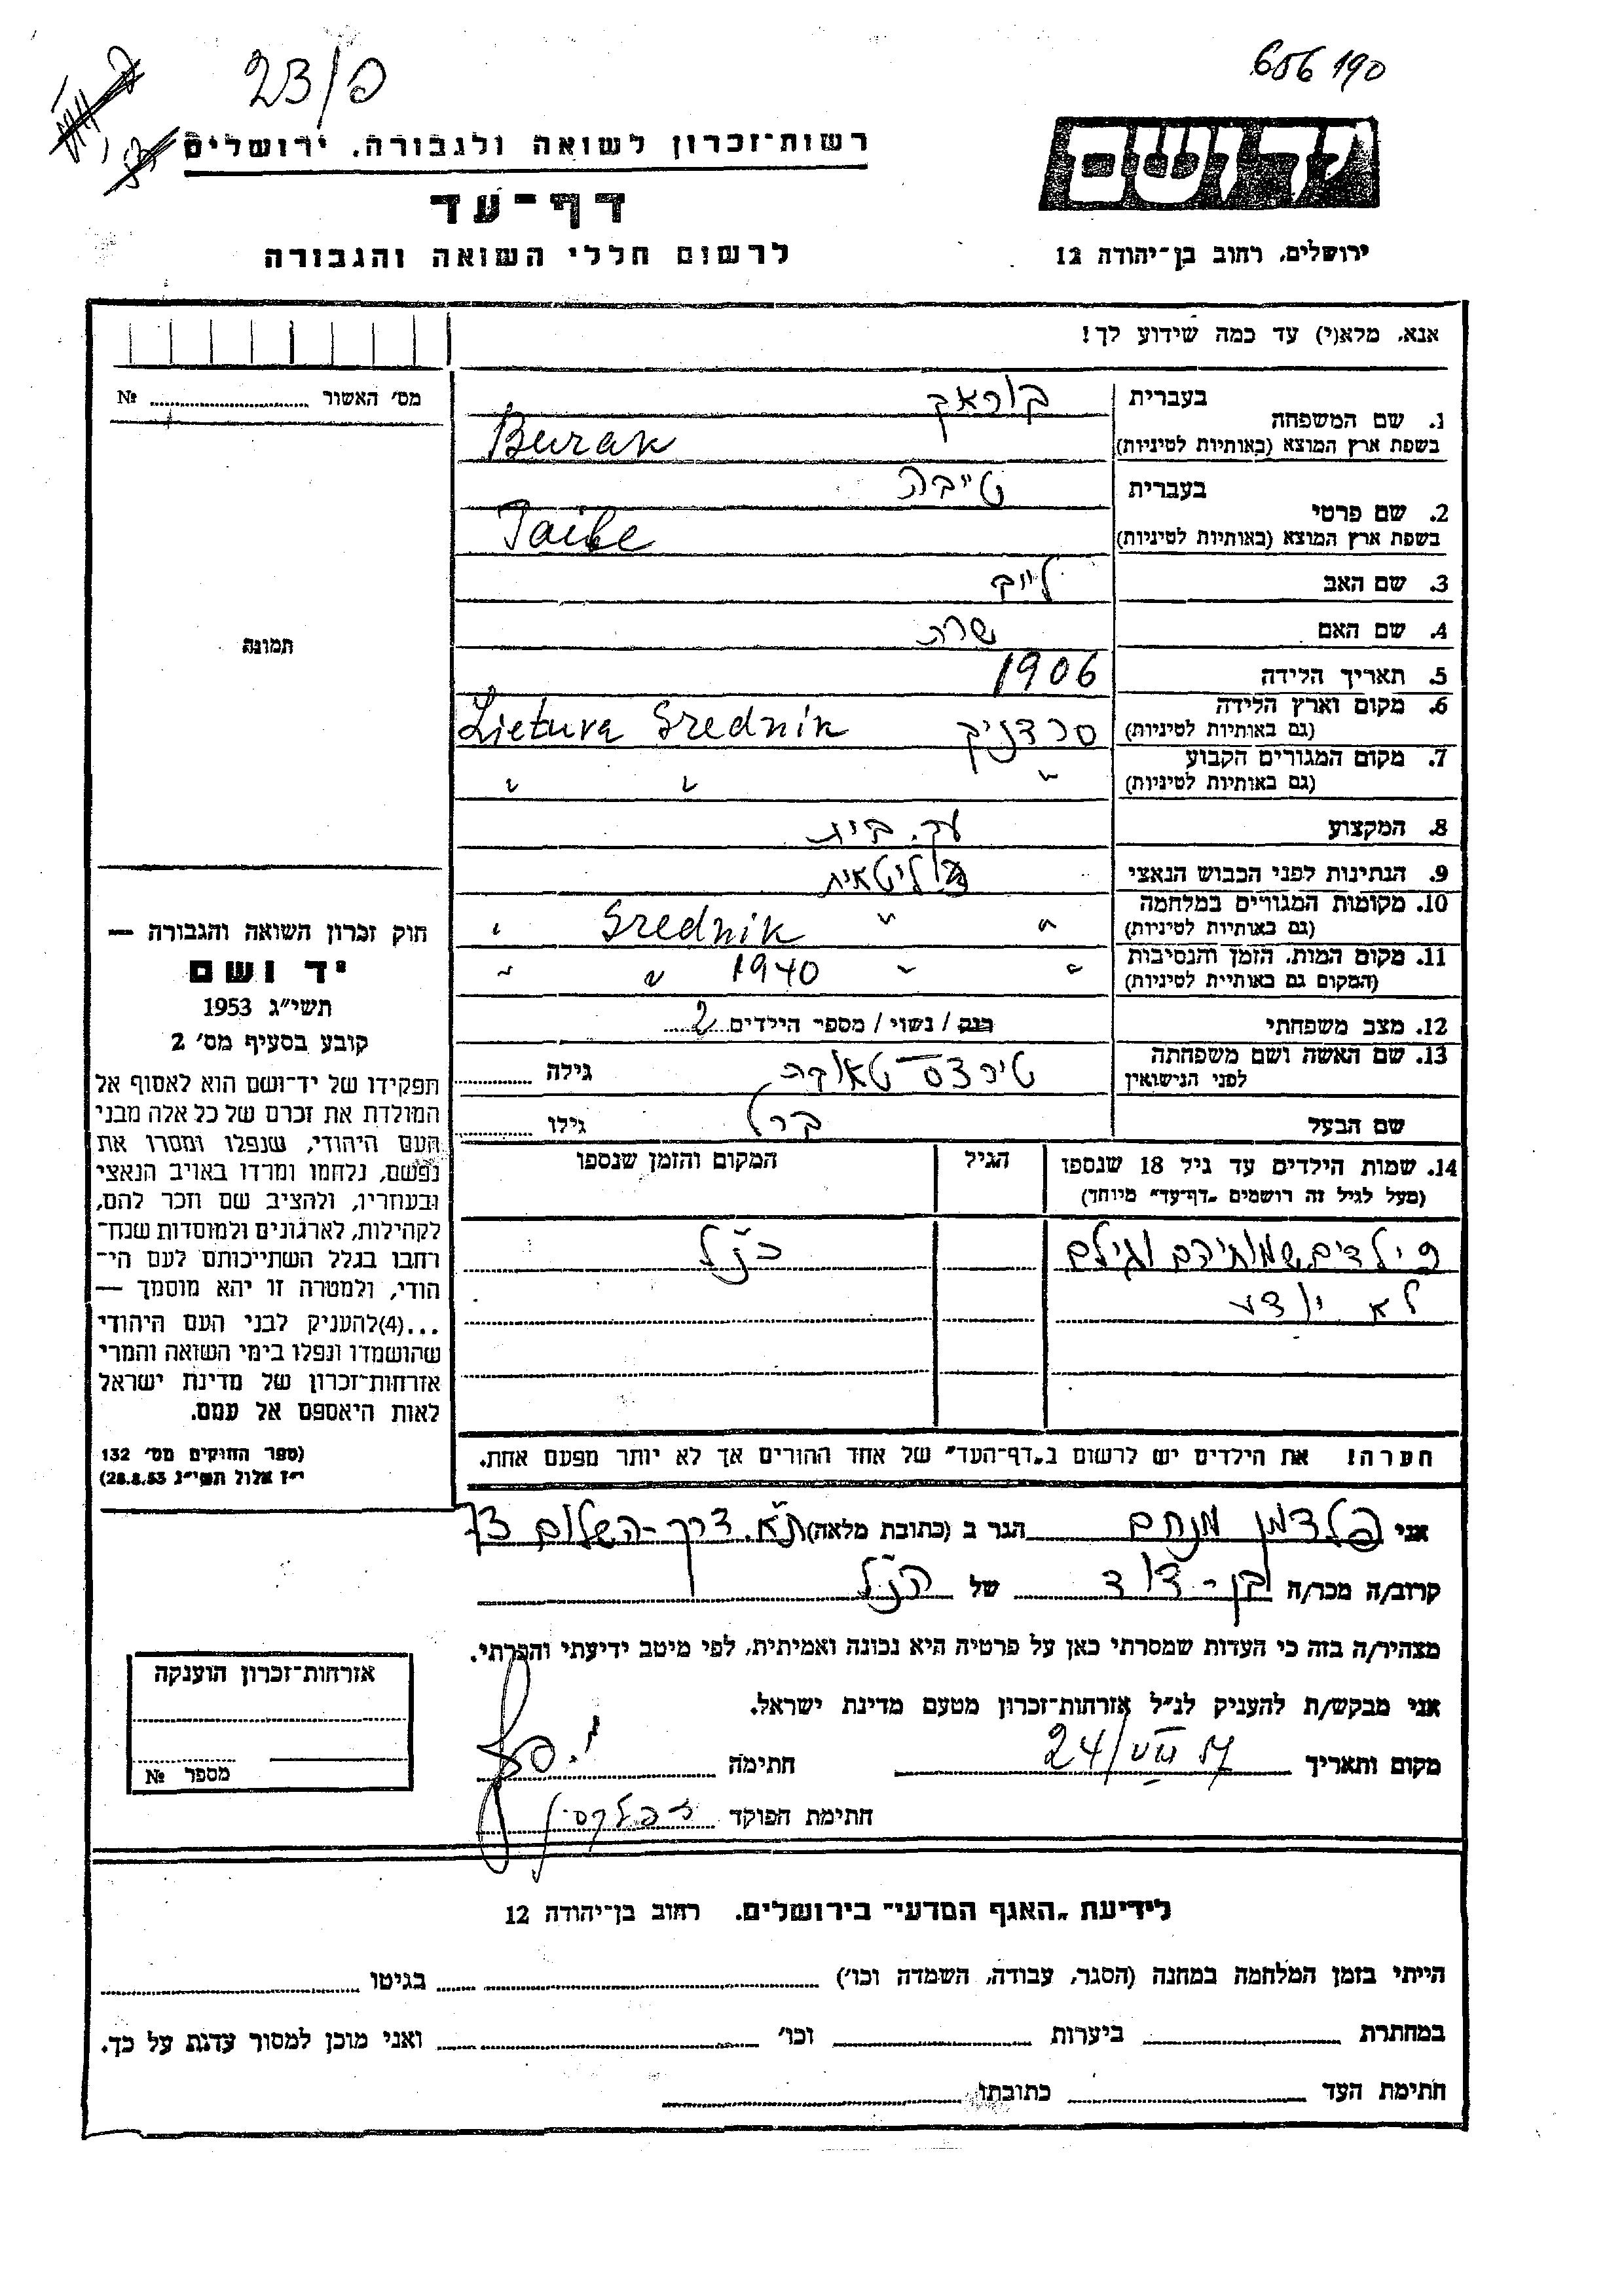 23/פ
606 190
רשות־זכרון לשואה ולגבורה, ירושלים
דף־עד
לרשום חללי השואה והגבורה
יד ושם
ירושלים, רחוב בן־יהודה 12
אנא, מלא(י) עד כמה שידוע לך!
מס׳ האשור № ........
1. שם המשפחה בעברית בוראק
בשפת ארץ המוצא (באותיות לטיניות) Burak
2. שם פרטי בעברית טייבה
בשפת ארץ המוצא (באותיות לטיניות) Taibe
3. שם האב לייב
4. שם האם שרה
5. תאריך הלידה 1906
6. מקום וארץ הלידה (גם באותיות לטיניות) סרדניק Lietuva Srednik
7. מקום המגורים הקבוע (גם באותיות לטיניות) " " "
8. המקצוע עק. בית
9. הנתינות לפני הכבוש הנאצי ליטאית
10. מקומות המגורים במלחמה (גם באותיות לטיניות) " " Srednik "
11. מקום המות, הזמן והנסיבות (המקום גם באותיית לטיניות) " " 1940 " "
12. מצב משפחתי רווק / נשוי / מספר הילדים 2
13. שם האשה ושם משפחתה לפני הנישואין גילה ........
שם הבעל ברל גילו ........
14. שמות הילדים עד גיל 18 שנספו (מעל לגיל זה רושמים „דף־עד" מיוחד)
הגיל
המקום והזמן שנספו
ילדים שמותיהם וגילם כנ"ל
לא יודע
הערה! את הילדים יש לרשום ב„דף־העד" של אחד ההורים אך לא יותר מפעם אחת.
תמונה
חוק זכרון השואה והגבורה —
יד ושם
תשי״ג 1953
קובע בסעיף מס׳ 2
תפקידו של יד־ושם הוא לאסוף אל
המולדת את זכרם של כל אלה מבני
העם היהודי, שנפלו ומסרו את
נפשם, נלחמו ומרדו באויב הנאצי
ובעוזריו, ולהציב שם וזכר להם,
לקהילות, לארגונים ולמוסדות שנח־
רבו בגלל השתייכותם לעם הי־
הודי, ולמטרה זו יהא מוסמך —
...(4)להעניק לבני העם היהודי
שהושמדו ונפלו בימי השואה והמרי
אזרחות־זכרון של מדינת ישראל
לאות היאספם אל עמם.
(ספר החוקים מס׳ 132
י״ז אלול תשי״ג 28.8.53)
אני פלדמן מנחם הגר ב (כתובת מלאה) ת"א. דרך-השלום
קרוב/ה מכר/ה בן-דוד של הנ"ל
מצהיר/ה בזה כי העדות שמסרתי כאן על פרטיה היא נכונה ואמיתית, לפי מיטב ידיעתי והכרתי.
אני מבקש/ת להעניק לנ״ל אזרחות־זכרון מטעם מדינת ישראל.
מקום ותאריך 24/VIII 57 חתימה
חתימת הפוקד
אזרחות־זכרון הוענקה
מספר №
לידיעת „האגף המדעי" בירושלים, רחוב בן־יהודה 12
הייתי בזמן המלחמה במחנה (הסגר, עבודה, השמדה וכו׳) ........ בגיטו ........
במחתרת ........ ביערות ........ וכו׳ ........ ואני מוכן למסור עדות על כך.
חתימת העד ........ כתובתו ........